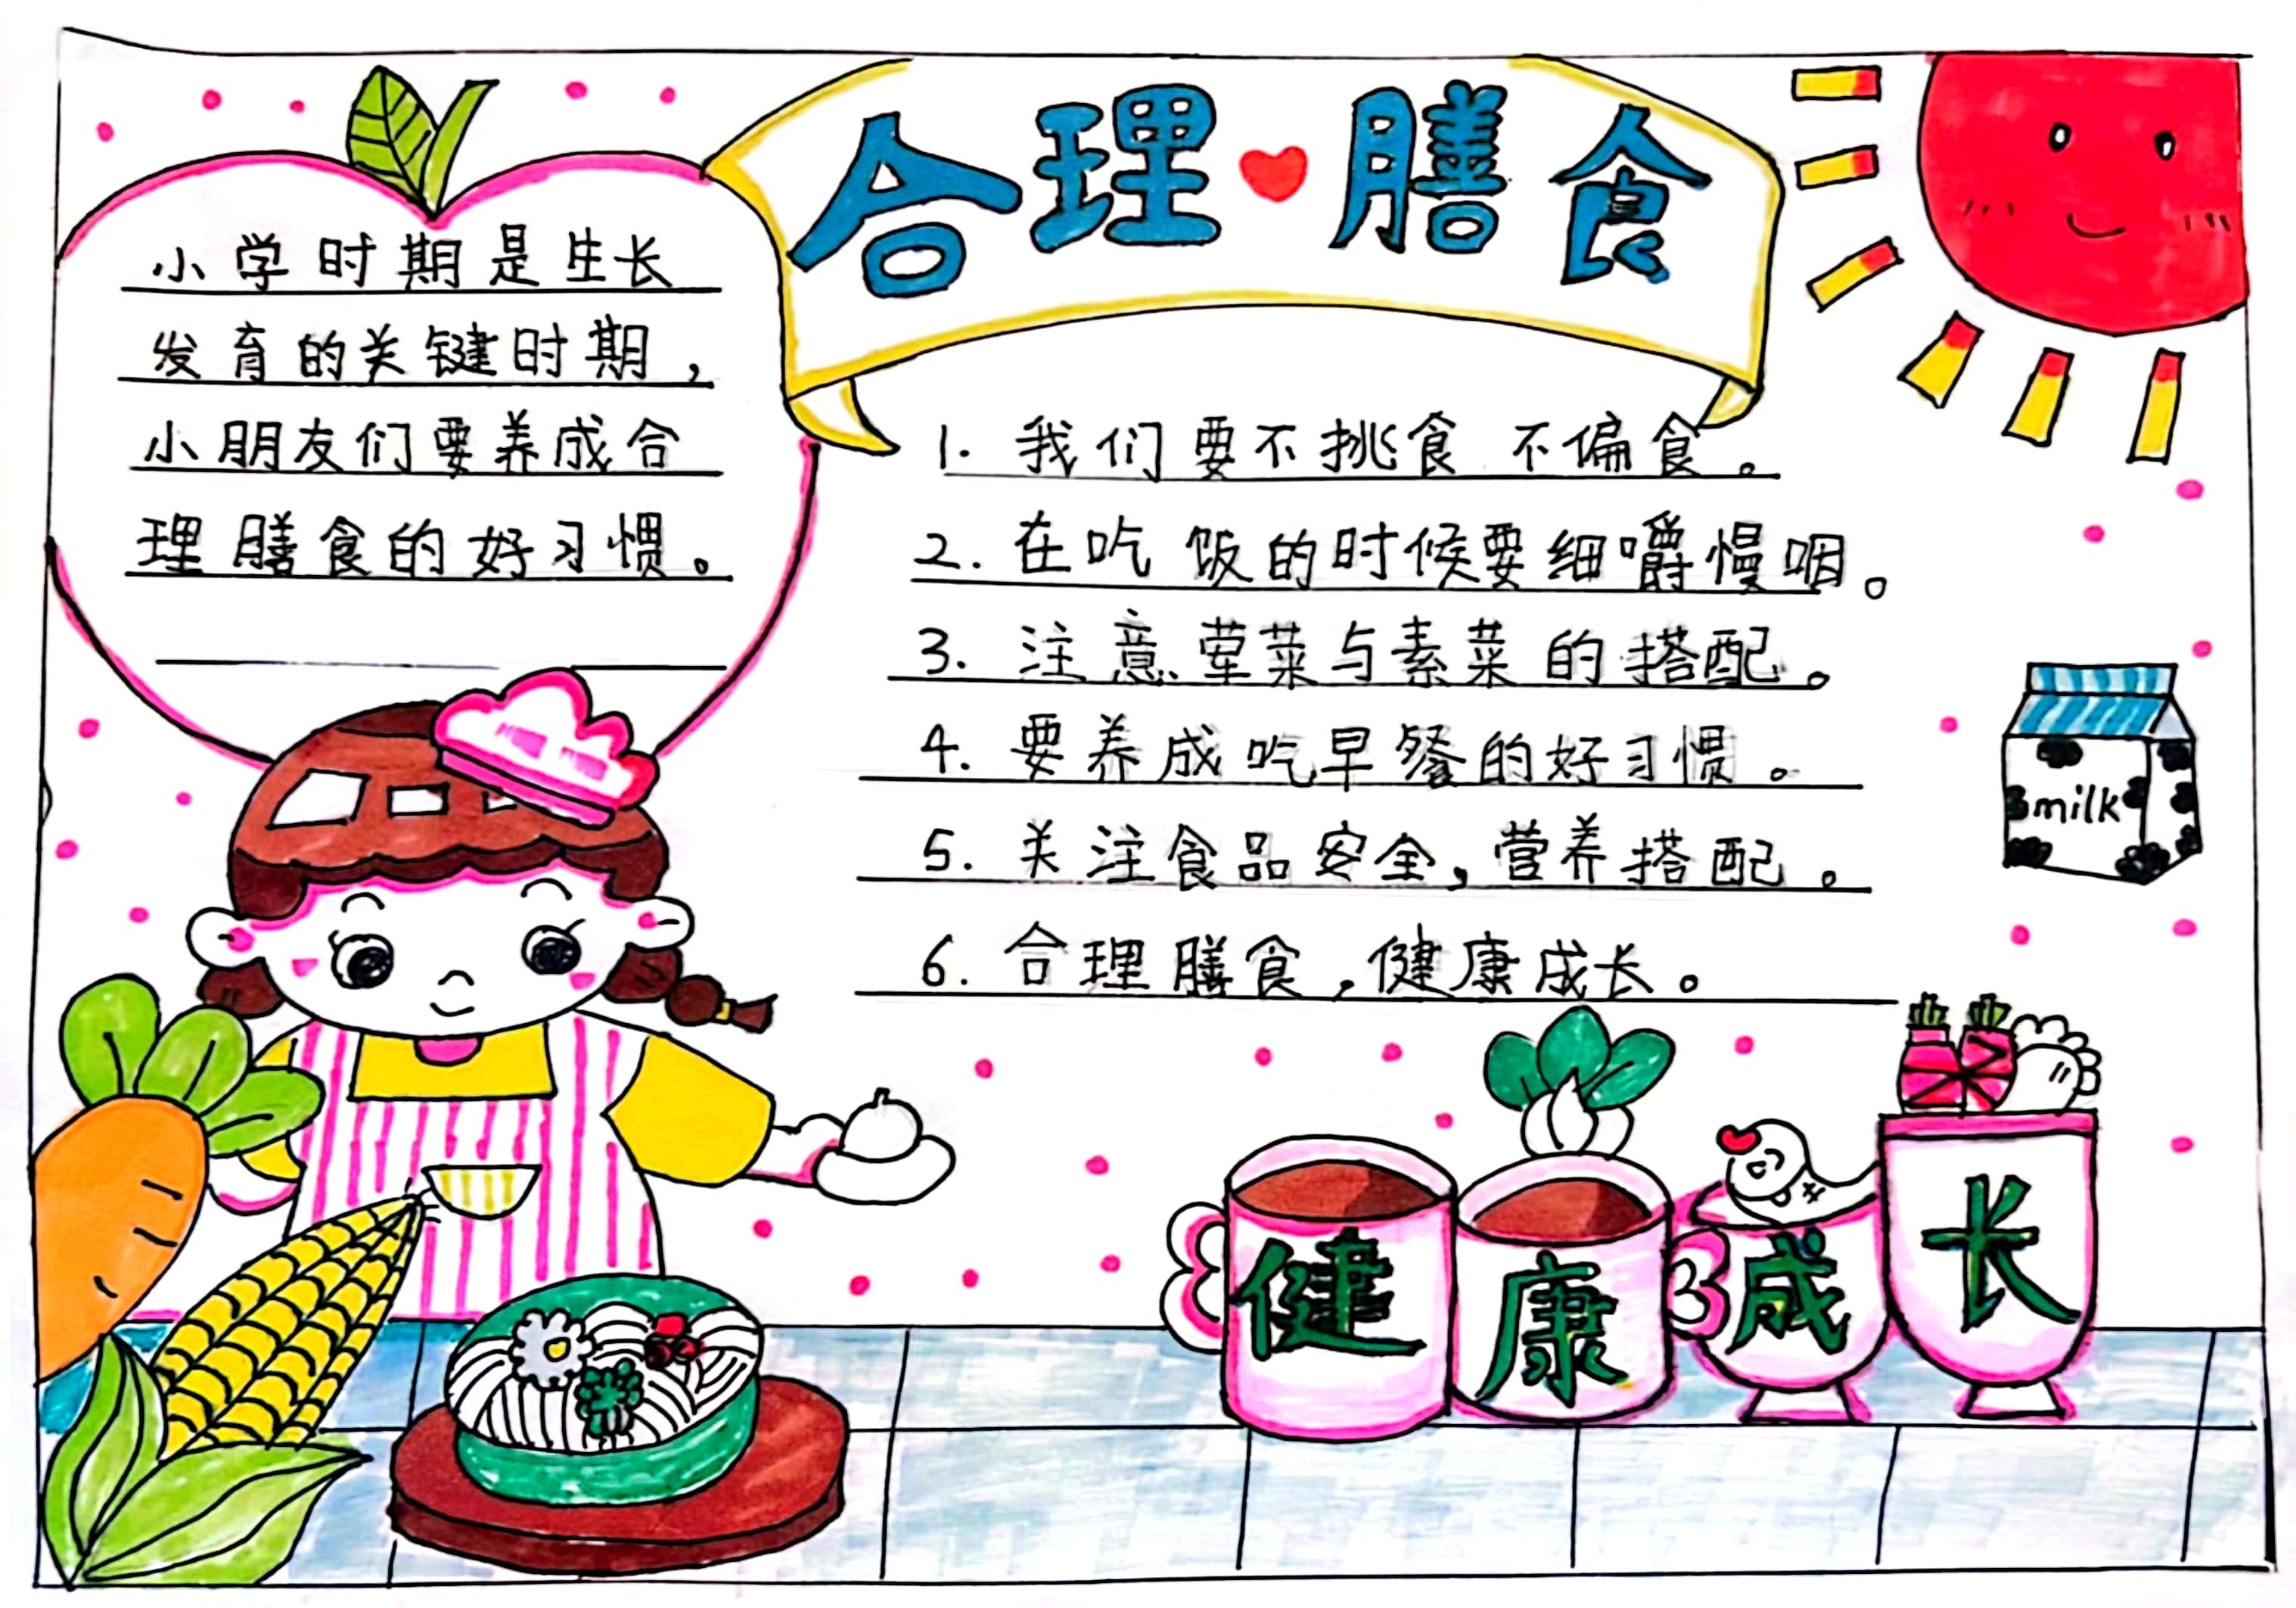 合理膳食
小学时期是生长
发育的关键时期，
小朋友们要养成合
理膳食的好习惯。
1. 我们要不挑食 不偏食。
2. 在吃饭的时候要细嚼慢咽。
3. 注意荤菜与素菜的搭配。
4. 要养成吃早餐的好习惯。
5. 关注食品安全，营养搭配。
6. 合理膳食，健康成长。
milk
健康成长